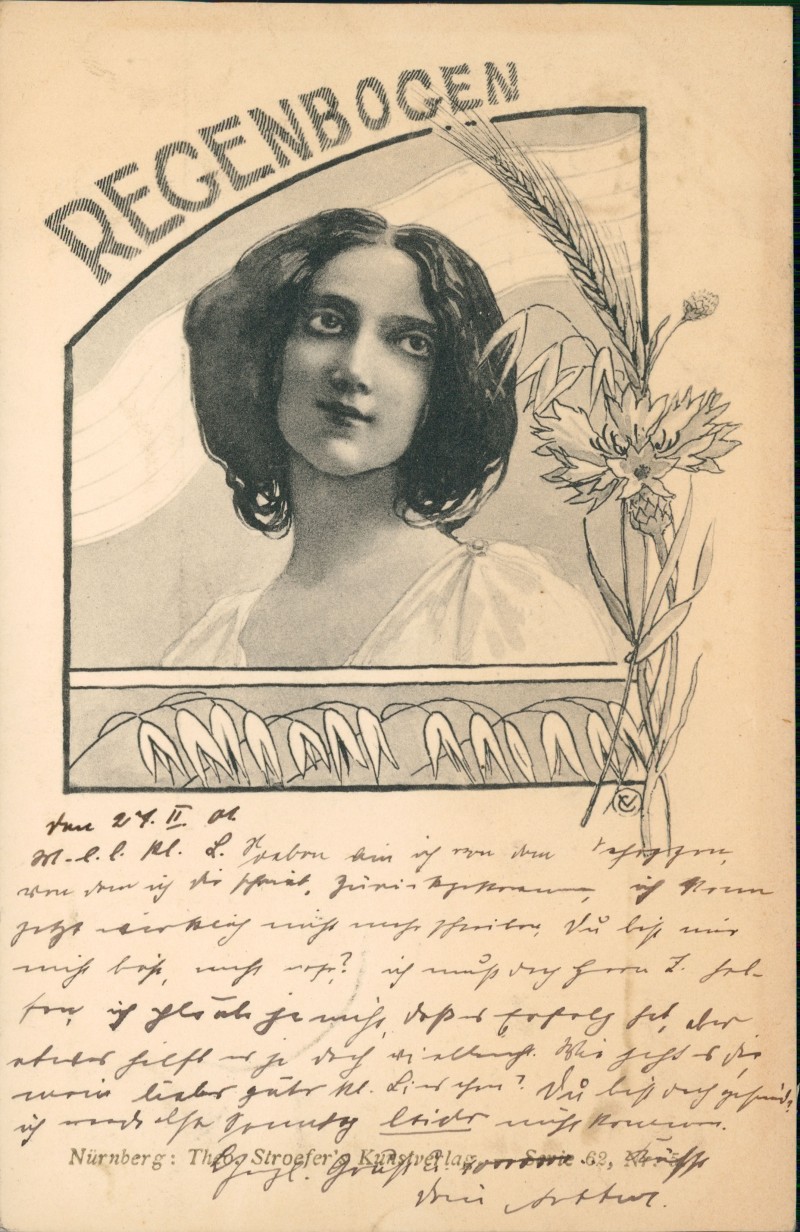 REGENBOGEN
den 27. II 01
M. l. l. kl. L. Soeben bin ich von dem
von dem ich dir schrieb, zurückgekommen, ich kann
jetzt wirklich nicht mehr schreiben. Du bist mir
nicht böse, nicht wahr? ich muß doch Herrn Z. hel-
fen, ich glaube ja nicht, daß es Erfolg hat, aber
etwas hilft es ja doch vielleicht. Wie geht es dir
mein liebes gutes kl. Lieschen? Du bist doch gesund?
ich werde also Sonntag leider nicht kommen.
Nürnberg: Theo. Stroefer's Kunstverlag. Serie 62,
Herzl. Gruß u. Küsse
dein Arthur.